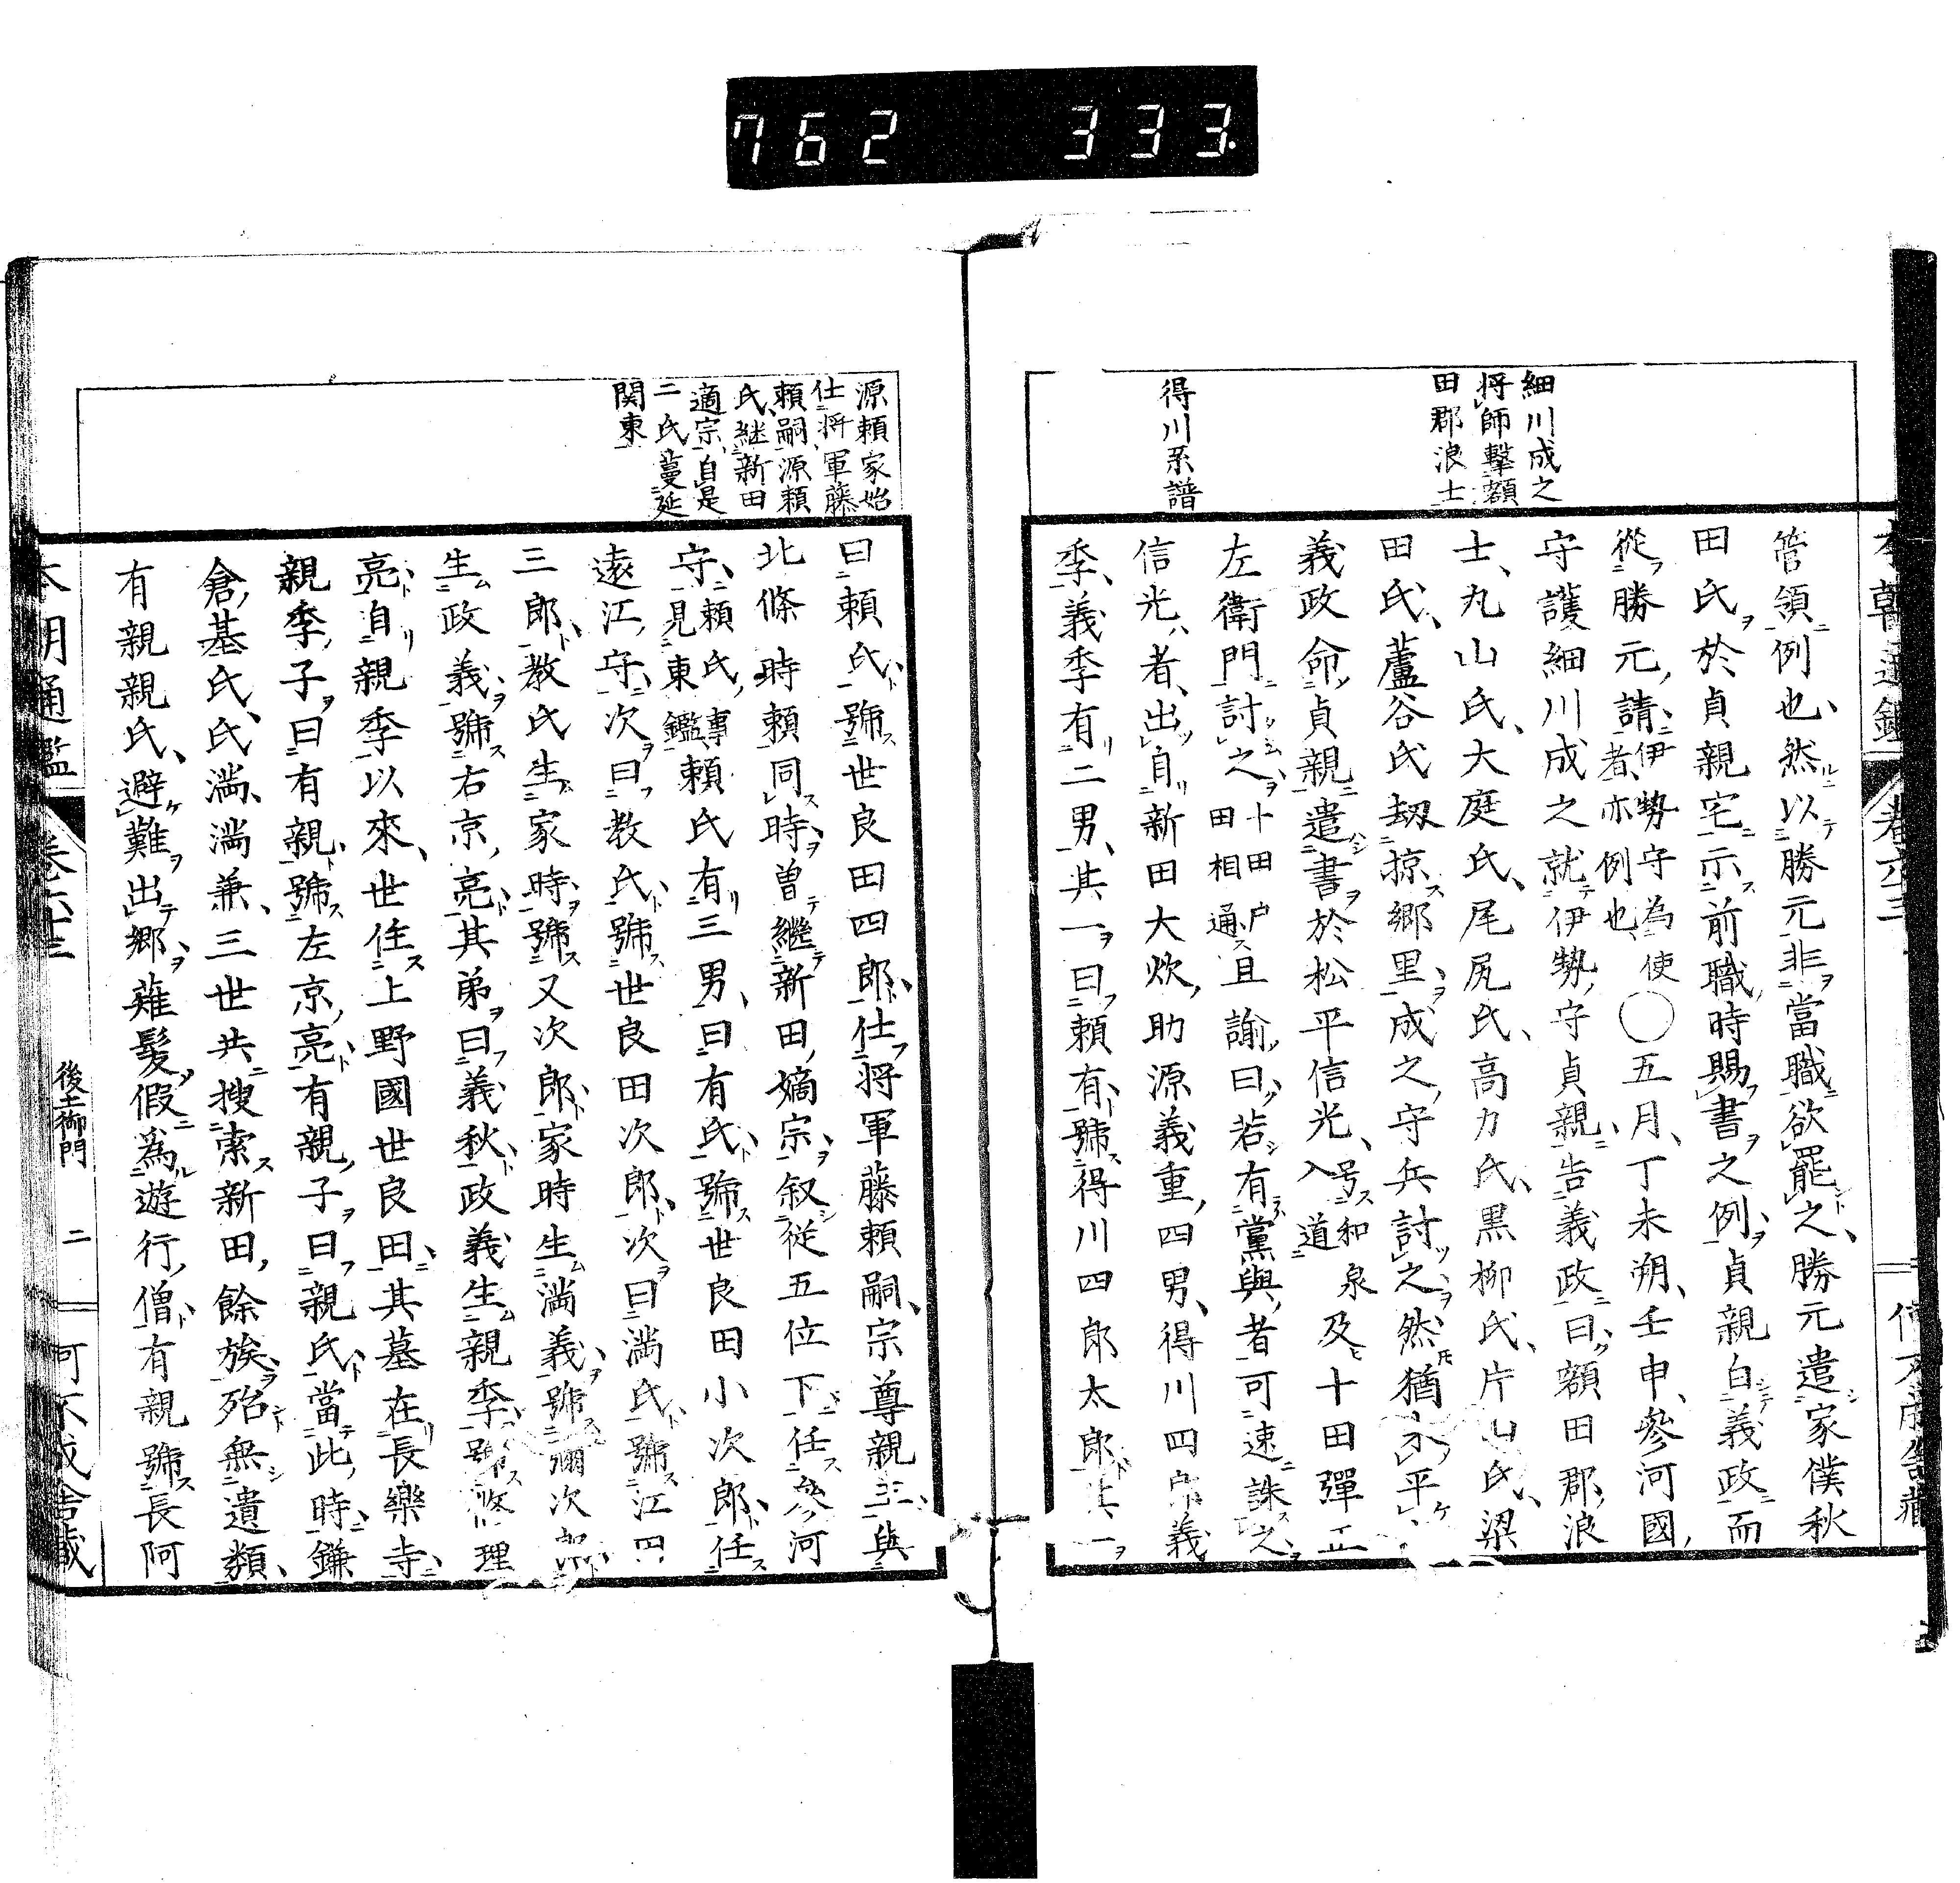 762 333.
細川成之
将師撃額
田郡浪士
得川系譜
管領例也、然以勝元非當職欲罷之、勝元遣家僕秋
田氏於貞親宅示前職時賜書之例、貞親白義政而
從勝元請、伊勢守為使者亦例也、○五月、丁未朔、壬申、參河國
守護細川成之就伊勢守貞親告義政曰、額田郡浪
士、丸山氏、大庭氏、尾尻氏、高力氏、黒柳氏、片山氏、梁
田氏、蘆谷氏劫掠郷里、成之守兵討之、然猶未平、
義政命貞親遣書於松平信光、号和泉入道及十田彈正
左衛門討之、十田戸田相通且諭曰、若有黨與者可速誅之、
信光者、出自新田大炊助源義重四男、得川四郎義
季、義季有二男、其一曰頼有、號得川四郎太郎、其一
源頼家始
仕将軍藤
頼嗣源頼
氏、継新田
適宗、自是
二氏蔓延
関東
曰頼氏、號世良田四郎、仕将軍藤頼嗣、宗尊親王、與
北條時頼同時曽継新田嫡宗、叙従五位下、任參河
守、頼氏事見東鑑頼氏有三男、曰有氏、號世良田小次郎、任
遠江守、次曰教氏、號世良田次郎、次曰満氏、號江田
三郎、教氏生家時、號又次郎、家時生満義、號彌次郎、満義
生政義、號右京亮、其弟曰義秋、政義生親季、號修理
亮、自親季以來、世住上野國世良田、其墓在長樂寺、
親季子曰有親、號左京亮、有親子曰親氏、當此時、鎌
倉基氏、氏満、満兼、三世共搜索新田餘族、殆無遺類、
有親親氏、避難出郷、薙髪假爲遊行僧、有親號長阿
本朝通鑑 卷六十三 後土御門 二